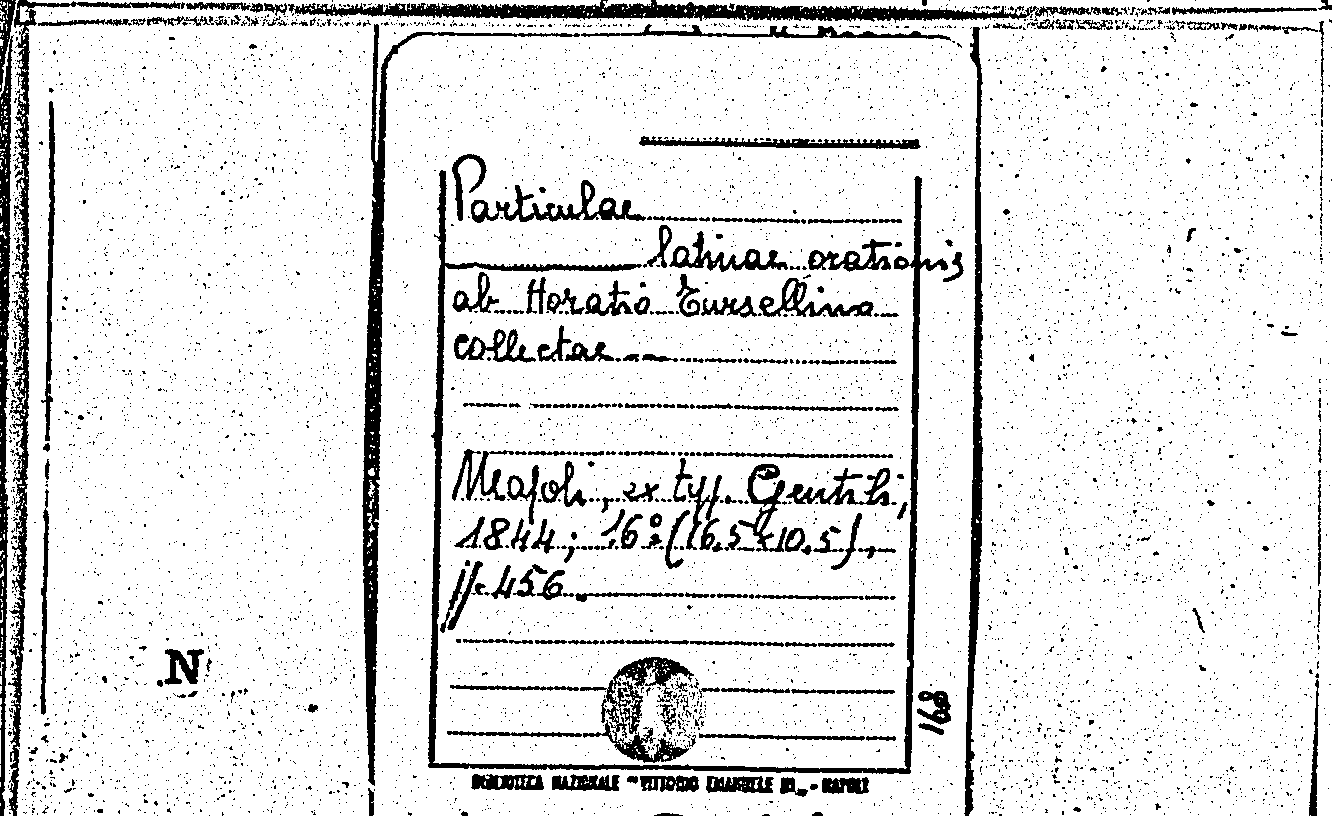 Particulae
latinae orationis
ab Horatio Tursellino
collectae
Neapoli, ex typ. Gentili,
1844; 16º (16.5x10.5),
pp. 456.
N
168
BIBLIOTECA NAZIONALE "VITTORIO EMANUELE III" - NAPOLI